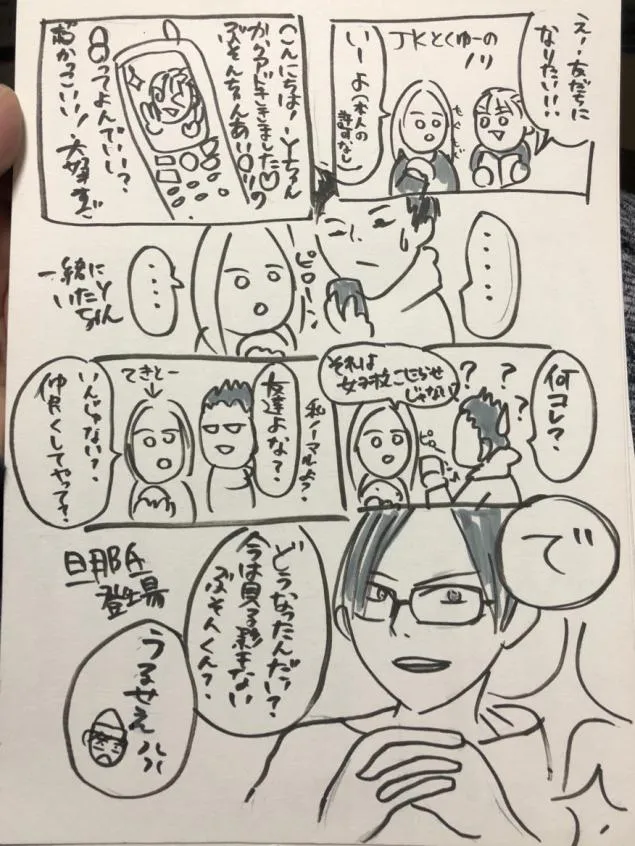 えー友だちに
なりたい!!
JKとくゆーの
ノリ
もぐもぐ
いーよ(本人の
許すなし)
こんにちは!Yちゃん
からアドききました♡
ぶそんちゃんあいの
ってよんでいい?
大好き
・・・・
ピローン
・・・
一緒に
いたYちゃん
何コレ?
???
それは
女子校こじらせ
じゃない
ピロ
私ノーマルよ?
友達よな?
てきとー
いんじゃない?
仲良くしてやって?
で
どうなったんだい?
今は見る影もない
ぶそんくん?
旦那氏
登場
うるせえ